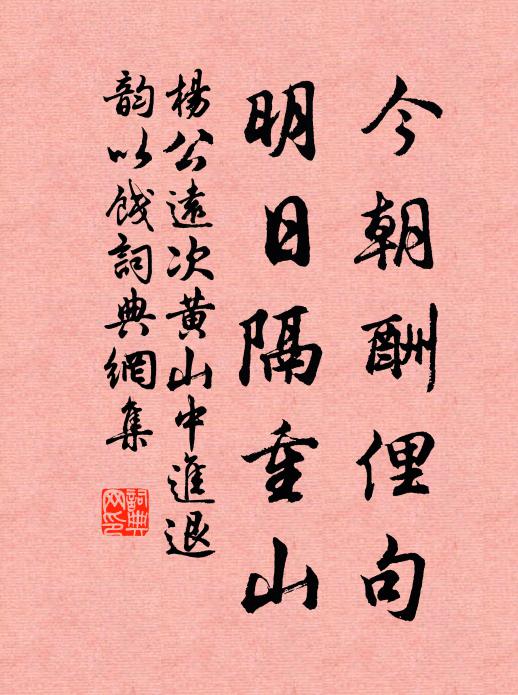 今朝酬俚句
明日隔重山
楊公遠次黄山中進退
韵以餞詞典網集
詞典
网印